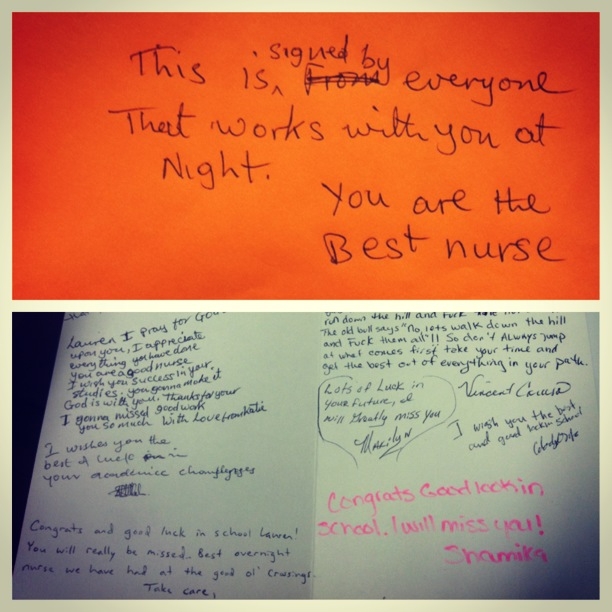 This is signed by everyone
That works with you at
Night.
You are the
Best nurse
Lauren I pray for God
upon you, I appreciate
everything you have done
you are a good nurse
I wish you success in your
studies. you gonna make it
God is with you. Thanks for your
good work
I gonna missed
you so much With Love from Katie
I wishes you the
best of luck in
your academice
Congrats and good luck in school Lauren!
You will really be missed. Best overnight
nurse we have had at the good ol'
Take care,
run down the hill and Fuck
The old bull says "No, lets walk down the hill
and Fuck them all"!! So don't ALways jump
at what comes first, take your time and
get the best out of everything in your path.
Vincent
Lots of Luck in
your Future, I
will Greatly miss you
Marilyn
I wish you the best
and good luck in school
Congrats Good lock in
school. I will miss you!
Shamika